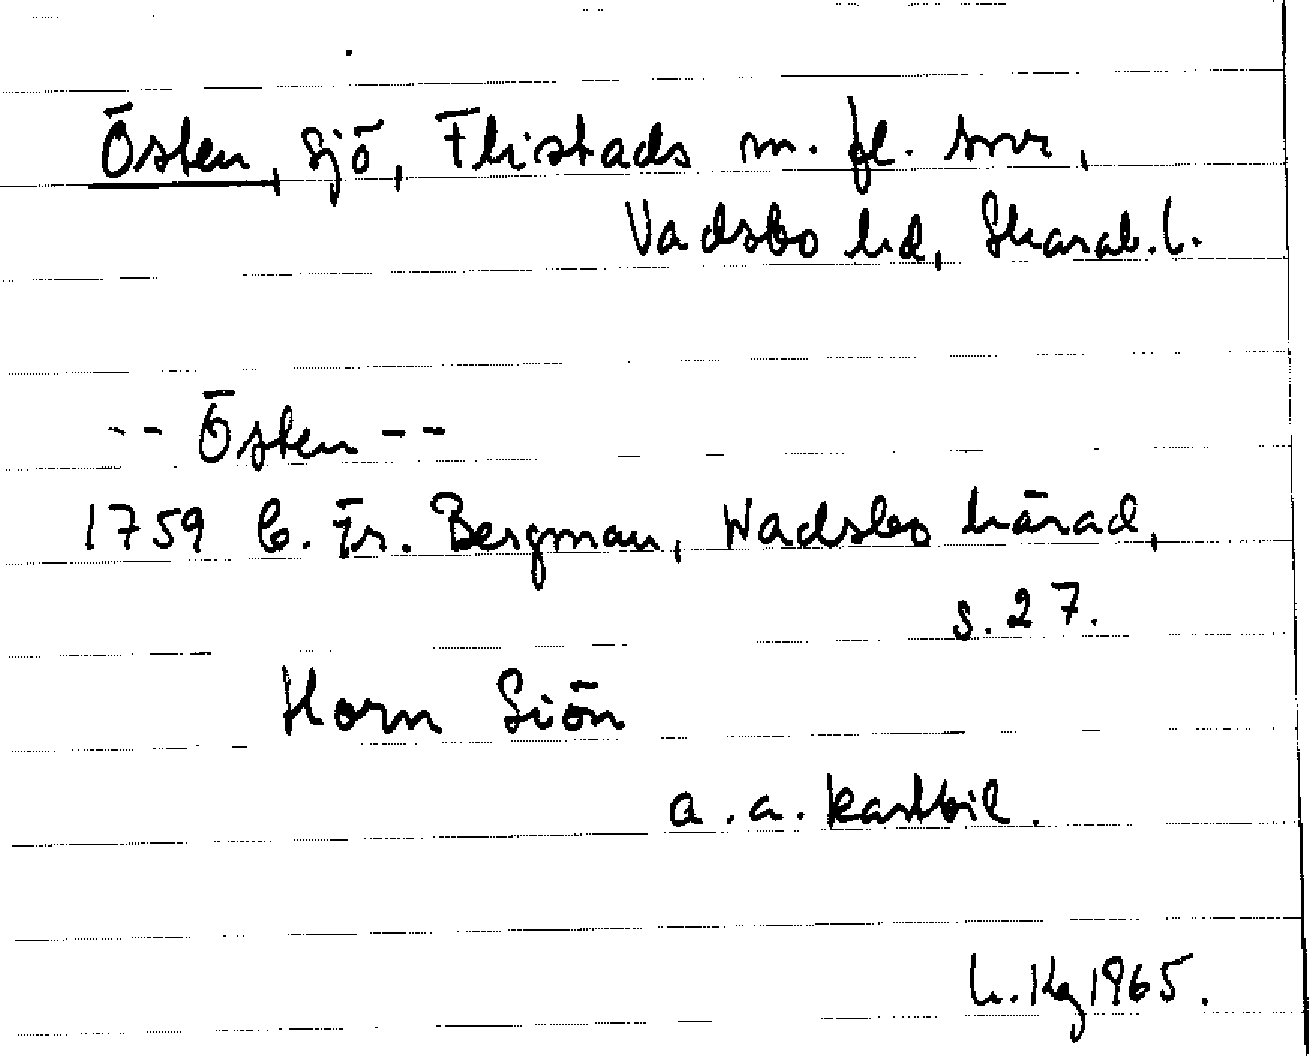 Östen, sjö, Flistads m. fl. snr,
Vadsbo hd, Skarab. l.
-- Östen --
1759 C. Fr. Bergman, Wadsbo härad,
s. 27.
Horn Siön
a. a. kartbil.
L. Kg 1965.